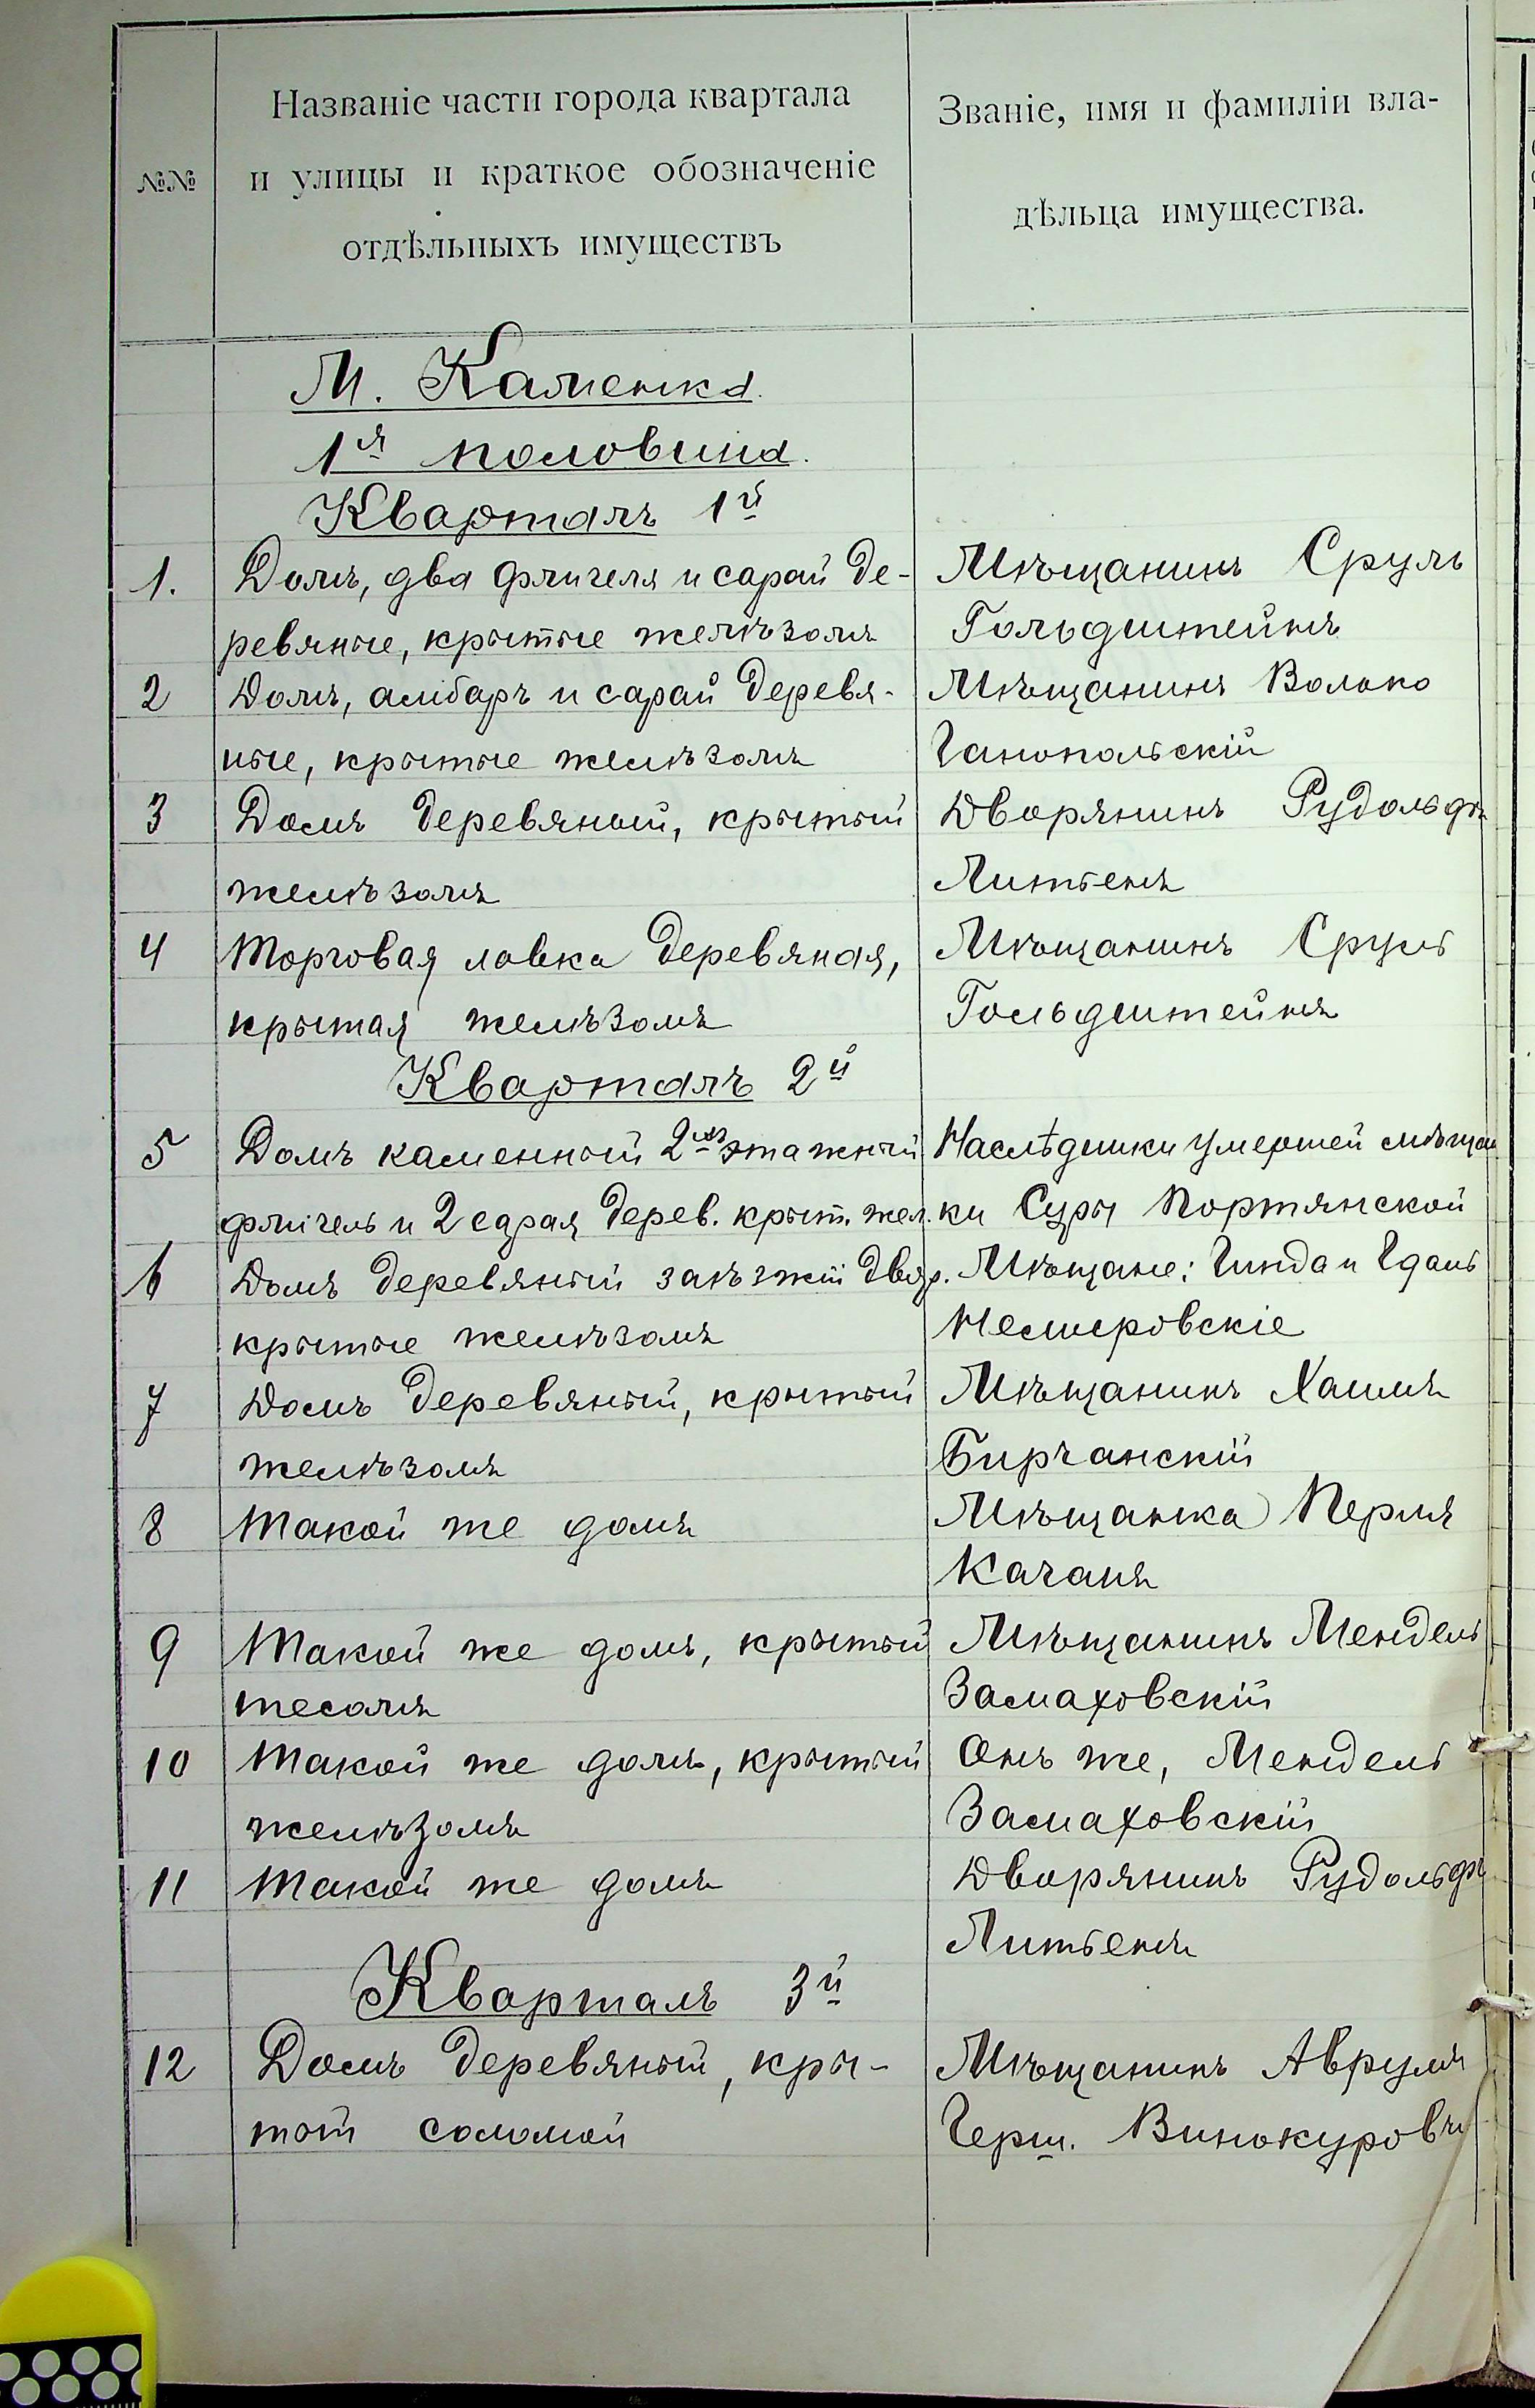 №№
Названіе части города квартала
и улицы и краткое обозначеніе
отдѣльныхъ имуществъ
Званіе, имя и фамиліи вла-
дѣльца имущества.
М. Каменка.
1я половина.
Кварталъ 1й
1. Домъ, два флигеля и сарай де- Мѣщанинъ Сруль
ревяные, крытые желѣзомъ Гольдштейнъ
2 Домъ, амбаръ и сарай деревя- Мѣщанинъ Волько
ные, крытые желѣзомъ Ганопольскій
3 Домъ деревяный, крытый Дворянинъ Рудольфъ
желѣзомъ Литьенъ
4 Торговая лавка деревяная, Мѣщанинъ Сруль
крытая желѣзомъ Гольдштейнъ
Кварталъ 2й
5 Домъ каменный 2хъ этажный Наслѣдники умершей мѣщан
флигель и 2 сарая дерев. крыт. жел. ки Суры Портянской
6 Домъ деревяный заѣзжій двор. Мѣщане: Гинда и Гдаль
крытые желѣзомъ Немировскіе
7 Домъ деревяный, крытый Мѣщанинъ Хаимъ
желѣзомъ Бирчанскій
8 Такой же домъ Мѣщанка Перля
Качанъ
9 Такой же домъ, крытый Мѣщанинъ Мендель
тесомъ Замаховскій
10 Такой же домъ, крытый Онъ же, Мендель
желѣзомъ Замаховскій
11 Такой же домъ Дворянинъ Рудольфъ
Литьенъ
Кварталъ 3й
12 Домъ деревяный, кры- Мѣщанинъ Аврумъ
тый соломой Герш. Винокуровъ